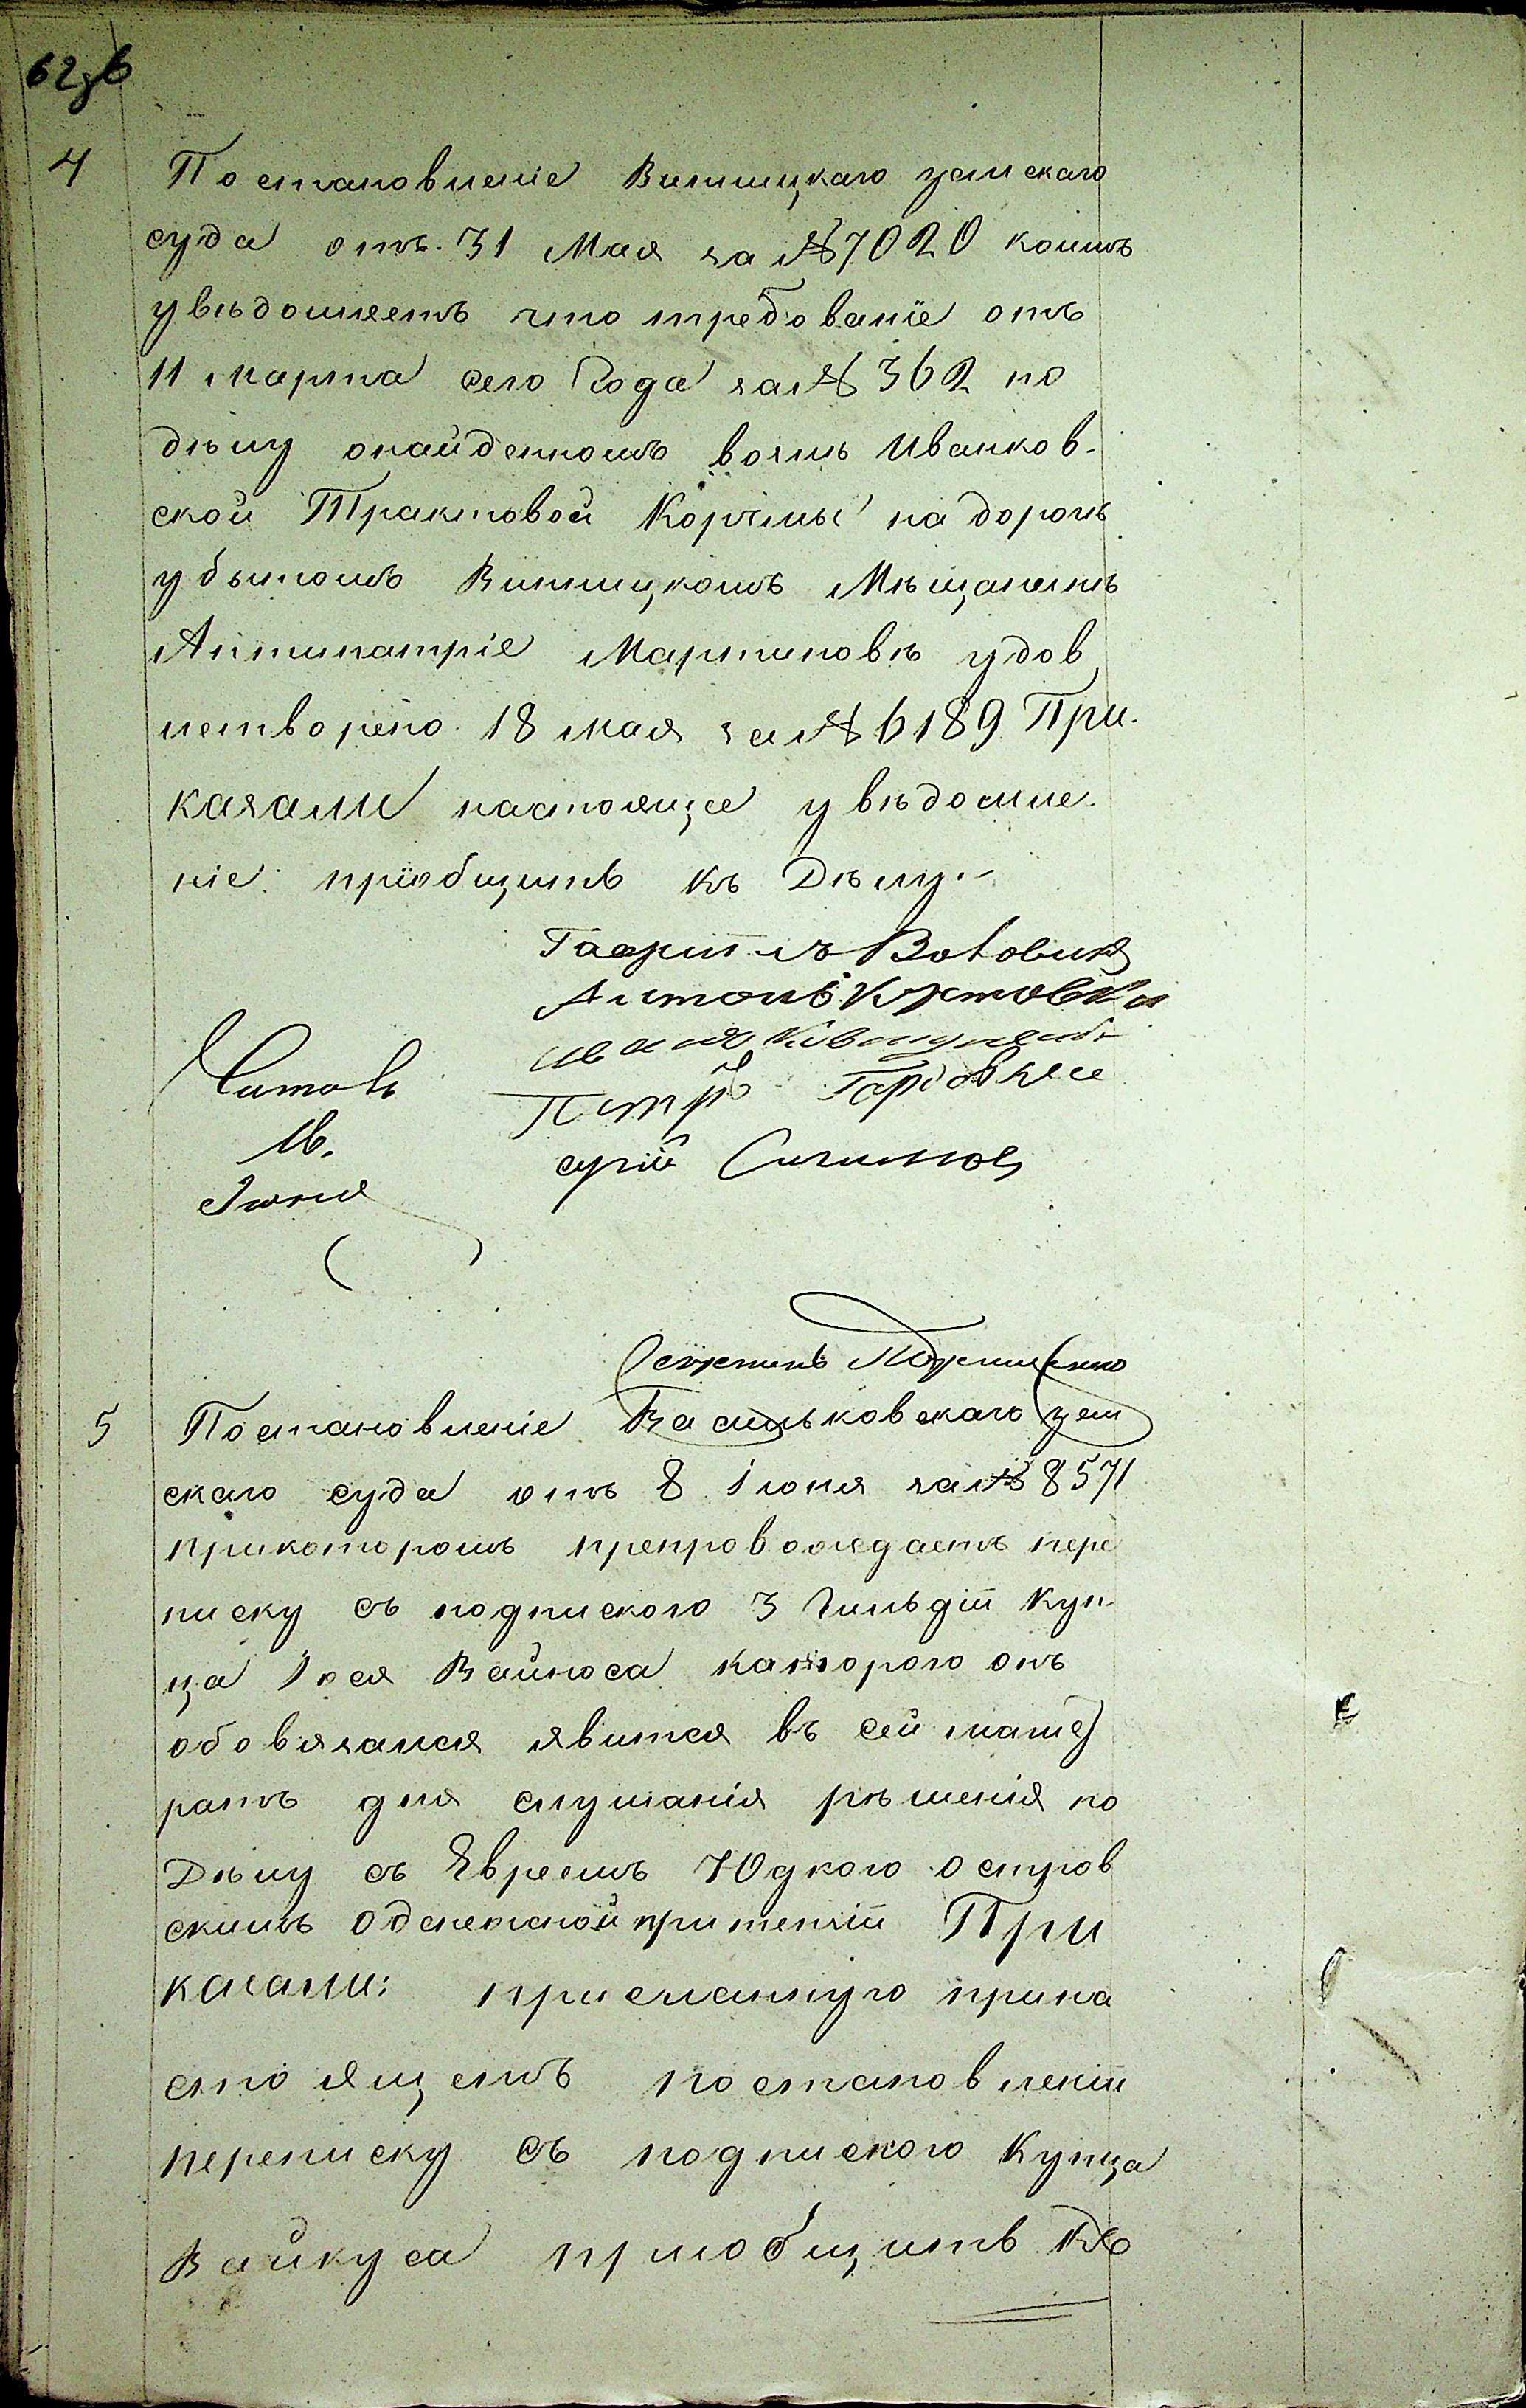 62зв
4 Постановленіе Винницкаго земскаго
суда отъ 31 Мая за № 7020 коимъ
увѣдомляетъ что требованіе отъ
11 марта сего Года за № 362 по
дѣлу онайденномъ возлѣ Иванков-
ской Трактовой Корчмы на дорогѣ
убытомъ Винницкомъ Мѣщанинѣ
Антипатріе Мартиновѣ удов
летворено 18 мая за № 6189 При-
казали настоящее увѣдомле-
ніе пріобщить къ Дѣлу.-
Гавріилъ
Антонъ
Петръ
Читалъ
Ив.
Іюня
5 Постановленіе Васильковскаго зем
скаго суда отъ 8 Іюня за № 8571
прикоторомъ препровождаетъ пере
писку съ подпискою 3 Гильдіи Куп-
ца Іося Вайноса каторою онъ
обовязался явится въ сей магист
ратъ для слушанія рѣшенія по
Дѣлу съ Евреемъ Юдкою Остров
скимъ оденежной притензіи При
казали: присланную прина
стоящемъ постановленіи
переписку съ подпискою Купца
Вайнуса пріобщить къ